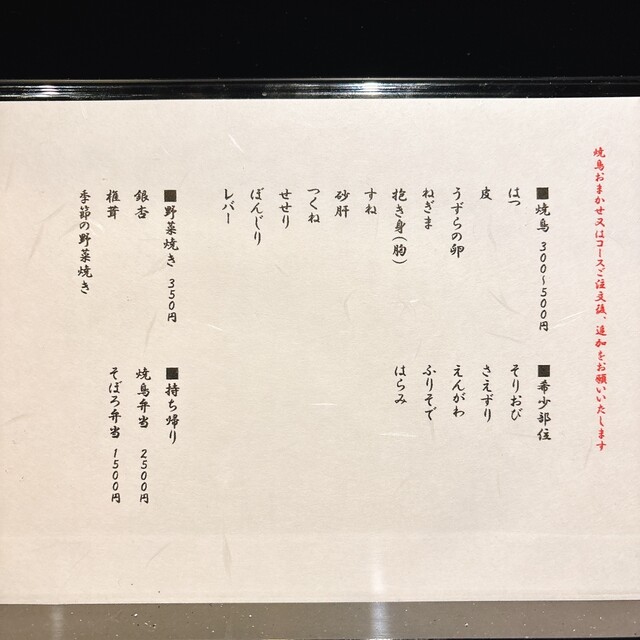 焼鳥おまかせ又はコースご注文後、追加をお願いいたします
■焼鳥 300〜500円
はつ
皮
うずらの卵
ねぎま
抱き身(胸)
すね
砂肝
つくね
せせり
ぼんじり
レバー
■希少部位
そりおび
さえずり
えんがわ
ふりそで
はらみ
■野菜焼き 350円
銀杏
椎茸
季節の野菜焼き
■持ち帰り
焼鳥弁当 2500円
そぼろ弁当 1500円